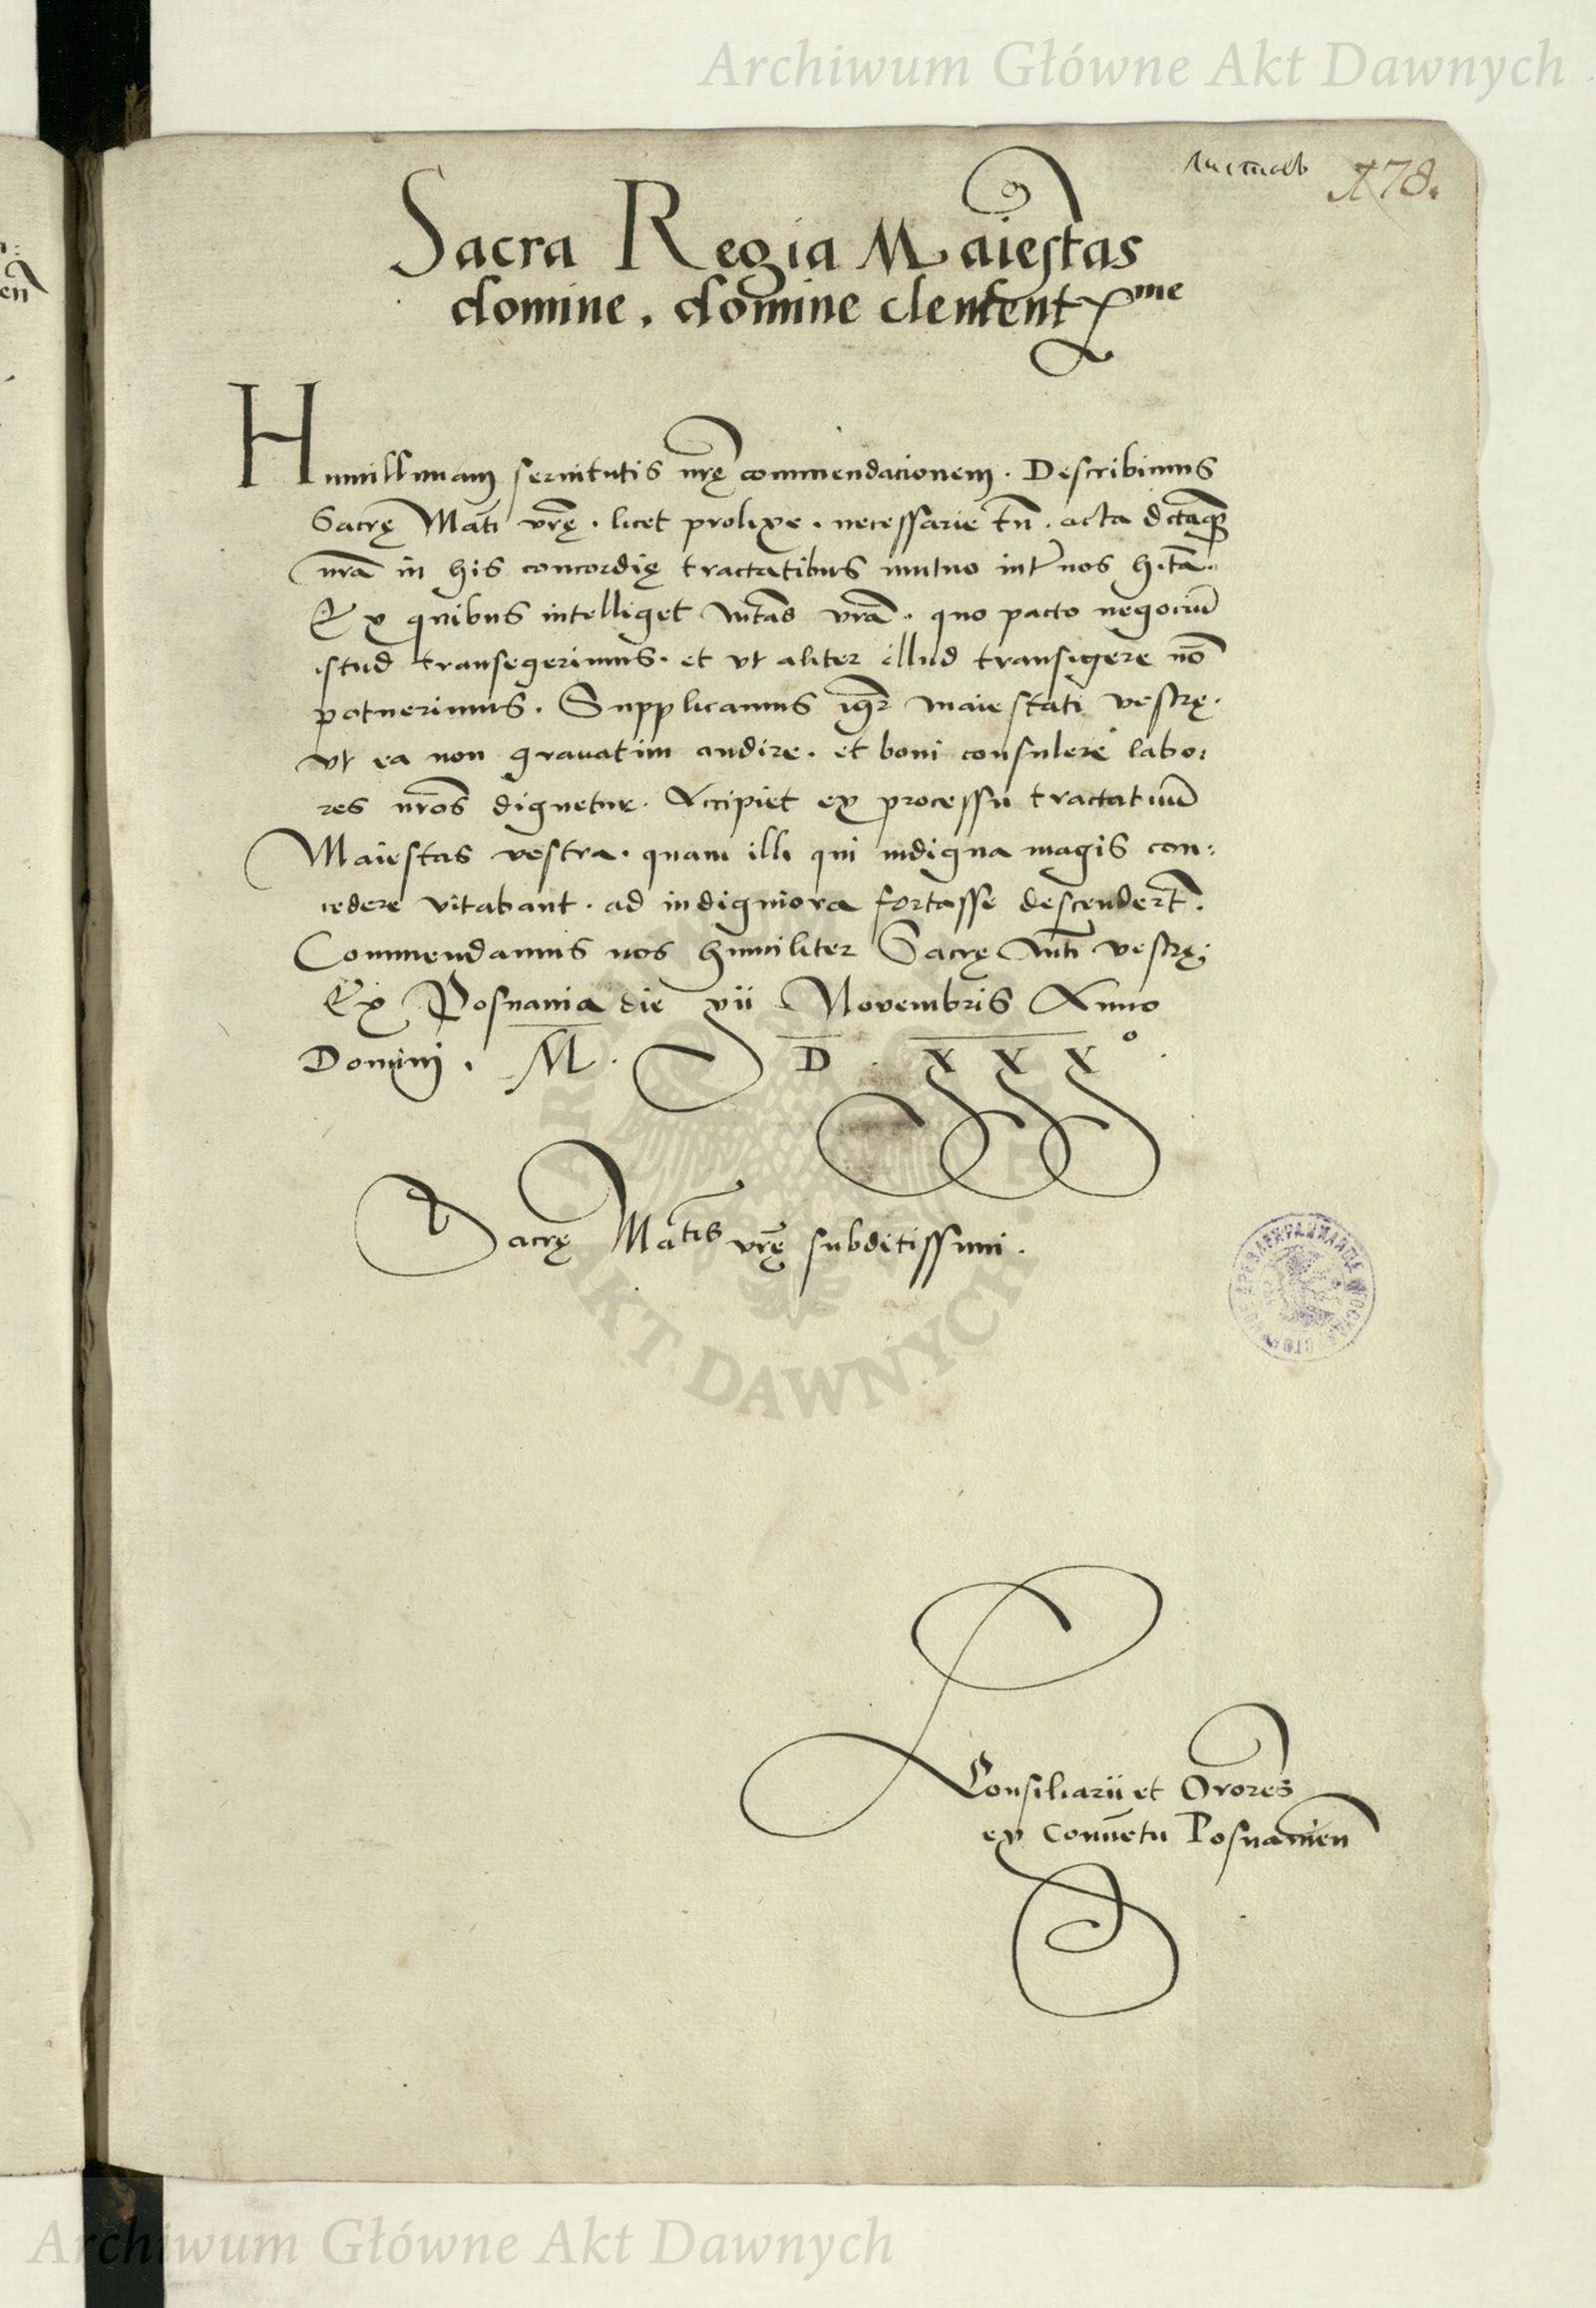 Archiwum Główne Akt Dawnych
178.
Sacra Regia Maiestas
domine. domine clementxme
Humillimam seruitutis nrę commendacionem. Describimus
Sacrę Mati vrę. licet prolixe. necessarie tn. acta dctaqz
nra in his concordię tractatibus mutuo inter nos hita.
Ex quibus intelliget Mtas vra. quo pacto negociu
istud transegerimus. et vt aliter illud transigere no
potuerimus. Supplicamus igr maiestati vestrę.
vt ea non grauatim audire. et boni consulere labo:
res nros dignetur. Accipiet ex processu tractatuu
Maiestas vestra. quam illi qui indigna magis con:
cedere vitabant. ad indigniora fortasse descendert.
Commendamus nos humiliter Sacrę Mti vestrę;
Ex Posnania die vii Novembris Anno
Domini. M. D. XXXo.
Sacrę Matis vrę subditissimi.
AKT DAWNYCH
Consiliarii et Orores
ex Conuetu Posnanien
Archiwum Główne Akt Dawnych